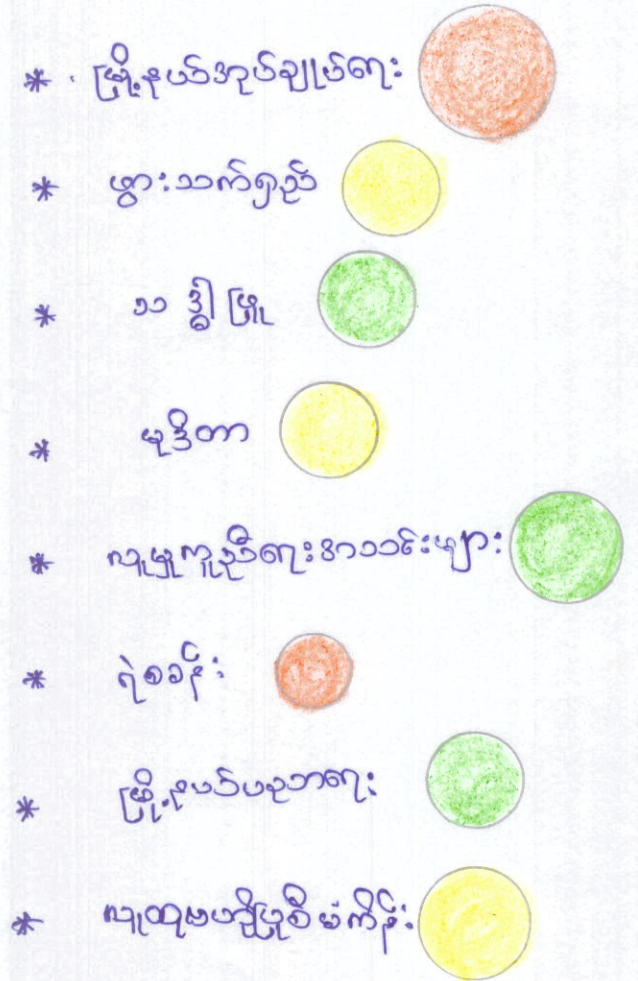 * မြို့နယ်အုပ်ချုပ်ရေး
* ဖွားသက်ရှည်
* သဒ္ဓါဖြူ
* မုဒိတာ
* လူမှုကူညီရေးအသင်းများ
* ရဲစခန်း
* မြို့နယ်ပညာရေး
* လူထုဗဟိုပြုစီမံကိန်း